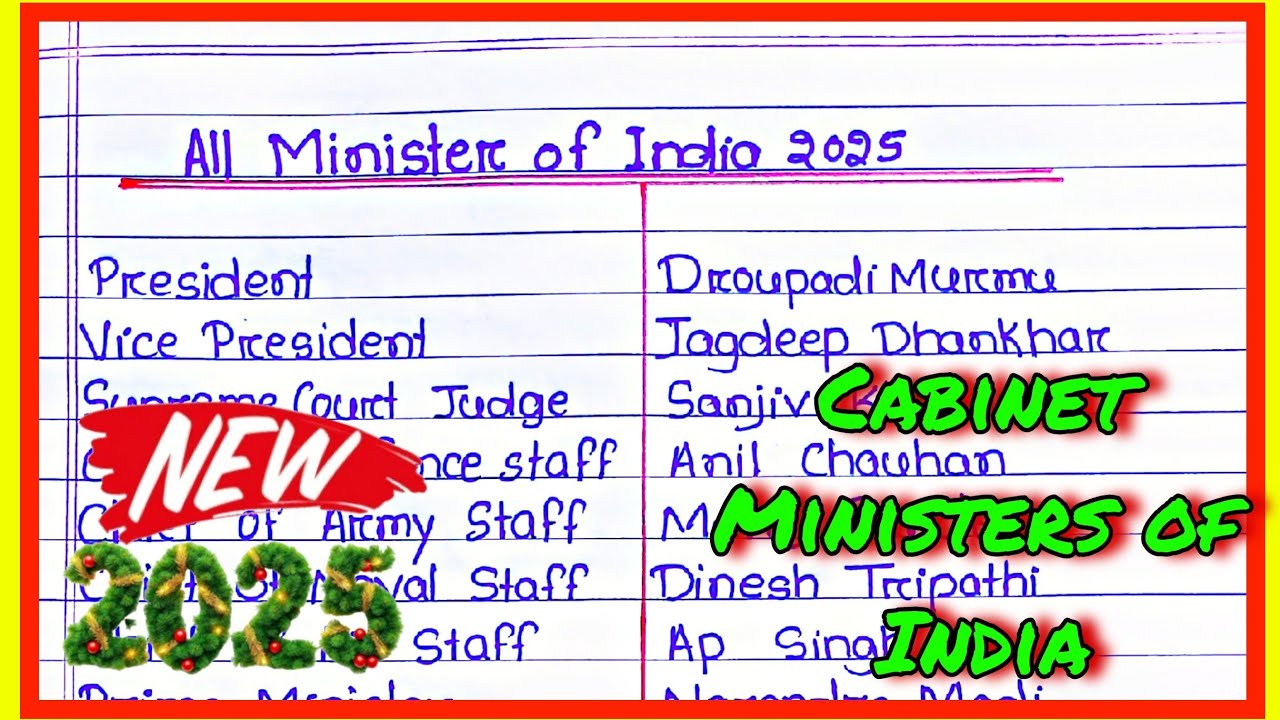 All Minister of India 2025
President Droupadi Murmu
Vice President Jagdeep Dhankhar
Supreme Court Judge Sanjiv
staff Anil Chauhan
Chief of Army Staff
Chief of Naval Staff Dinesh Tripathi
Staff Ap Singh
Prime Minister Narendra Modi
NEW
2025
Cabinet
Ministers of
India